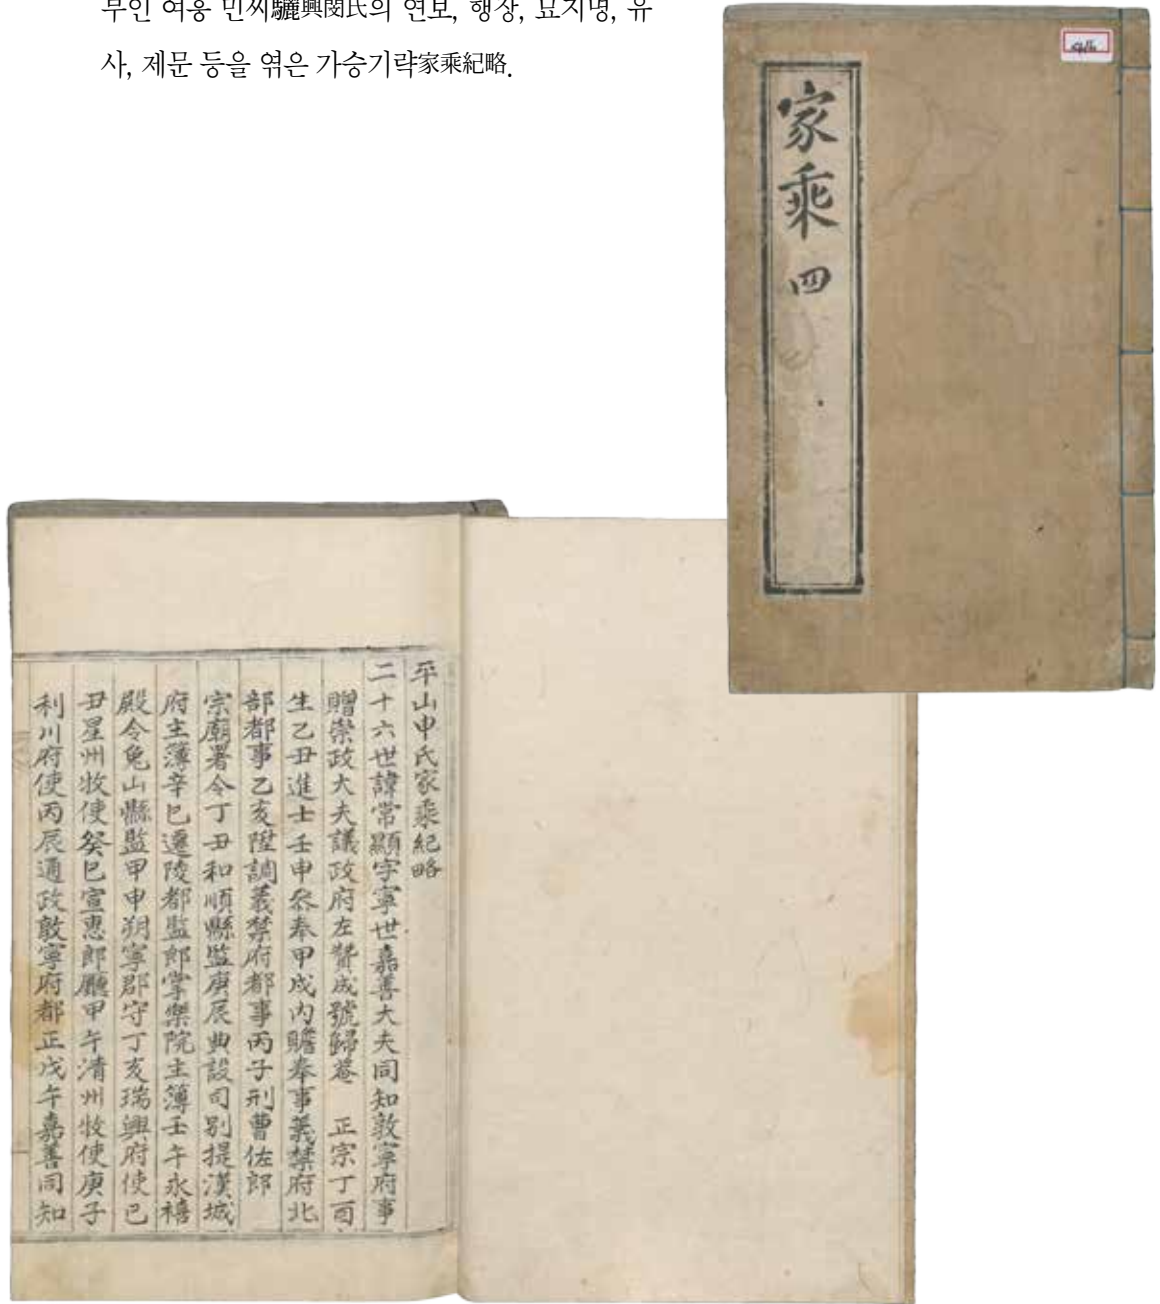 부인 여흥 민씨驪興閔氏의 연보, 행장, 묘지명, 유
사, 제문 등을 엮은 가승기략家乘紀略.
家乘 四
平山申氏家乘紀略
二十六世諱常顯字寧世嘉善大夫同知敦寧府事
贈崇政大夫議政府左贊成號歸菴 正宗丁酉
生乙丑進士壬申參奉甲戌內贍奉事義禁府北
部都事乙亥陞調義禁府都事丙子刑曹佐郎
宗廟署令丁丑和順縣監庚辰典設司別提漢城
府主簿辛巳遷陵都監郎掌樂院主簿壬午永禧
殿令兔山縣監甲申朔寧郡守丁亥瑞興府使己
丑星州牧使癸巳宣惠郎廳甲午淸州牧使庚子
利川府使丙辰通政敦寧府都正戊午嘉善同知